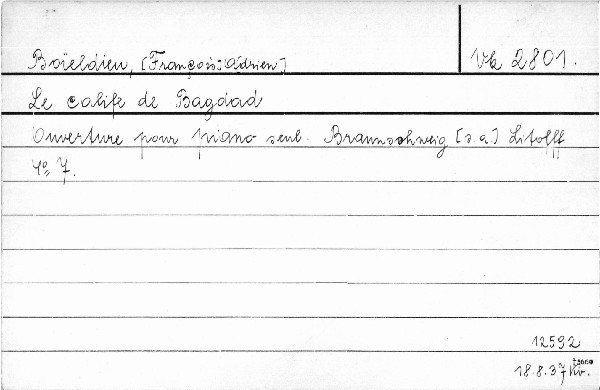 Boïeldieu, [François-Adrien] Vk 2801.
Le calife de Bagdad
Ouverture pour piano seul. Braunschweig [s.a.] Litolff
4° 7.
12592
18.8.37 Kv.